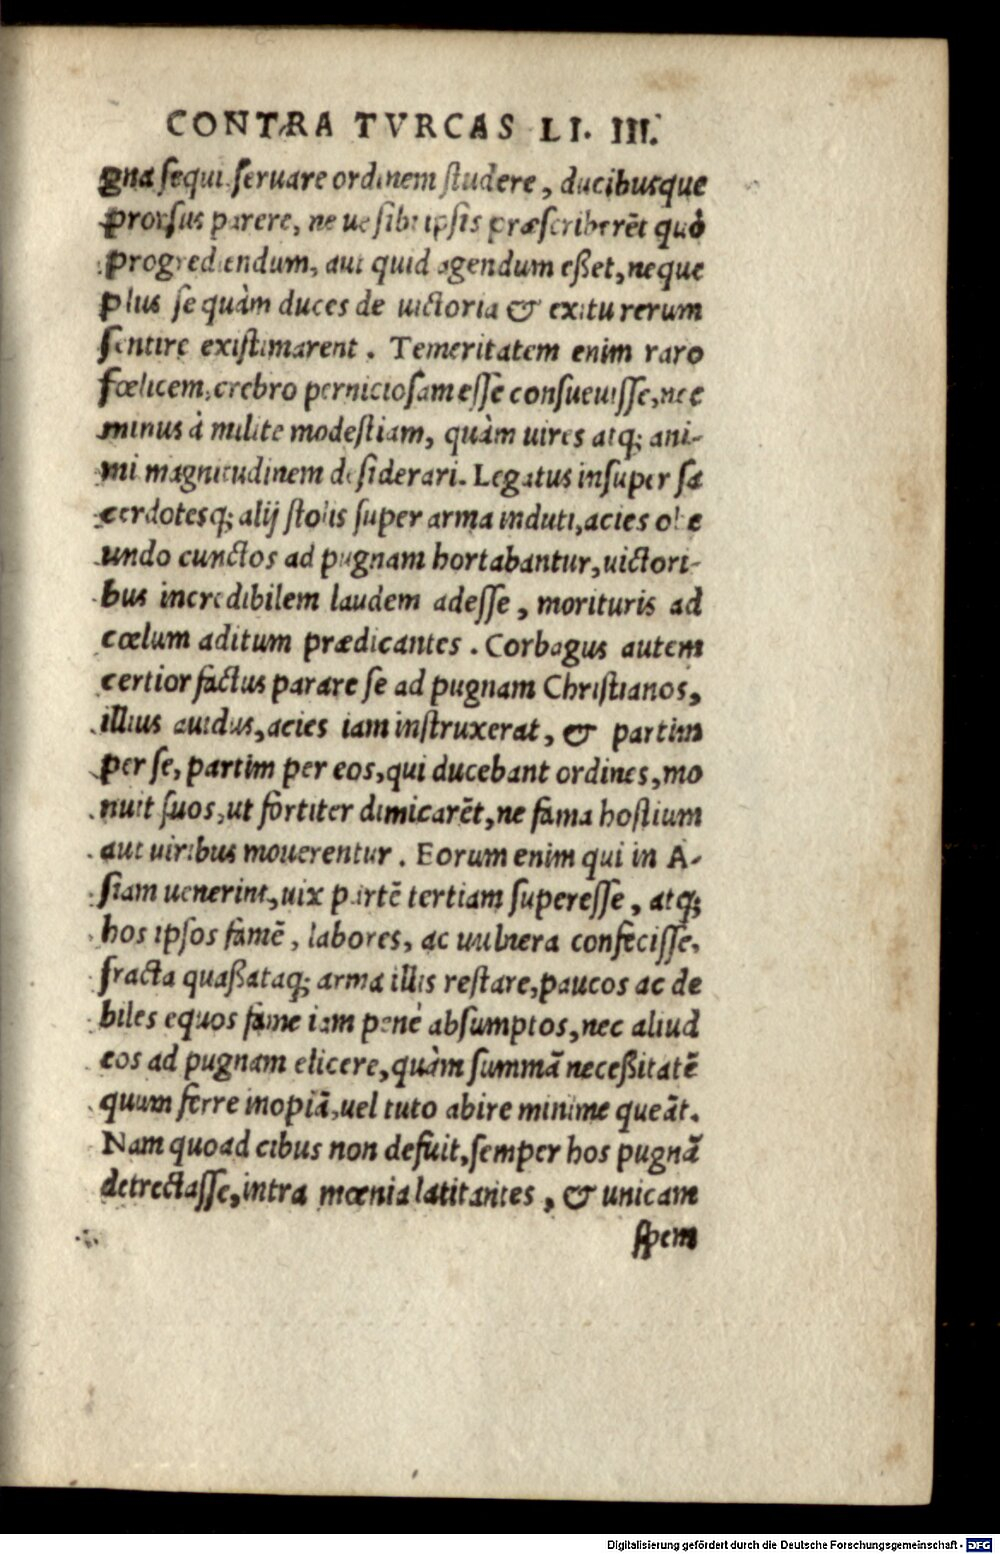 CONTRA TVRCAS LI. III.
gna sequi seruare ordinem studere, ducibusque
prorsus parere, ne ue sibi ipsis præscriberēt quò
progrediendum, aut quid agendum eßet, neque
plus se quàm duces de uictoria & exitu rerum
sentire existimarent. Temeritatem enim raro
fœlicem, crebro perniciosam esse consueuisse, nec
minus à milite modestiam, quàm uires atq; ani-
mi magnitudinem desiderari. Legatus insuper sa
cerdotesq; alij stolis super arma induti, acies obe
undo cunctos ad pugnam hortabantur, uictori-
bus incredibilem laudem adesse, morituris ad
cœlum aditum prædicantes. Corbagus autem
certior factus parare se ad pugnam Christianos,
illius auidus, acies iam instruxerat, & partim
per se, partim per eos, qui ducebant ordines, mo
nuit suos, ut fortiter dimicarēt, ne fama hostium
aut uiribus mouerentur. Eorum enim qui in A-
siam uenerint, uix partē tertiam superesse, atq;
hos ipsos famē, labores, ac uulnera confecisse,
fracta quaßataq; arma illis restare, paucos ac de
biles equos fame iam penè absumptos, nec aliud
eos ad pugnam elicere, quàm summā neceßitatē
quum ferre inopiā, uel tuto abire minime queāt.
Nam quoad cibus non defuit, semper hos pugnā
detrectasse, intra mœnia latitantes, & unicam
spem
Digitalisierung gefördert durch die Deutsche Forschungsgemeinschaft - DFG